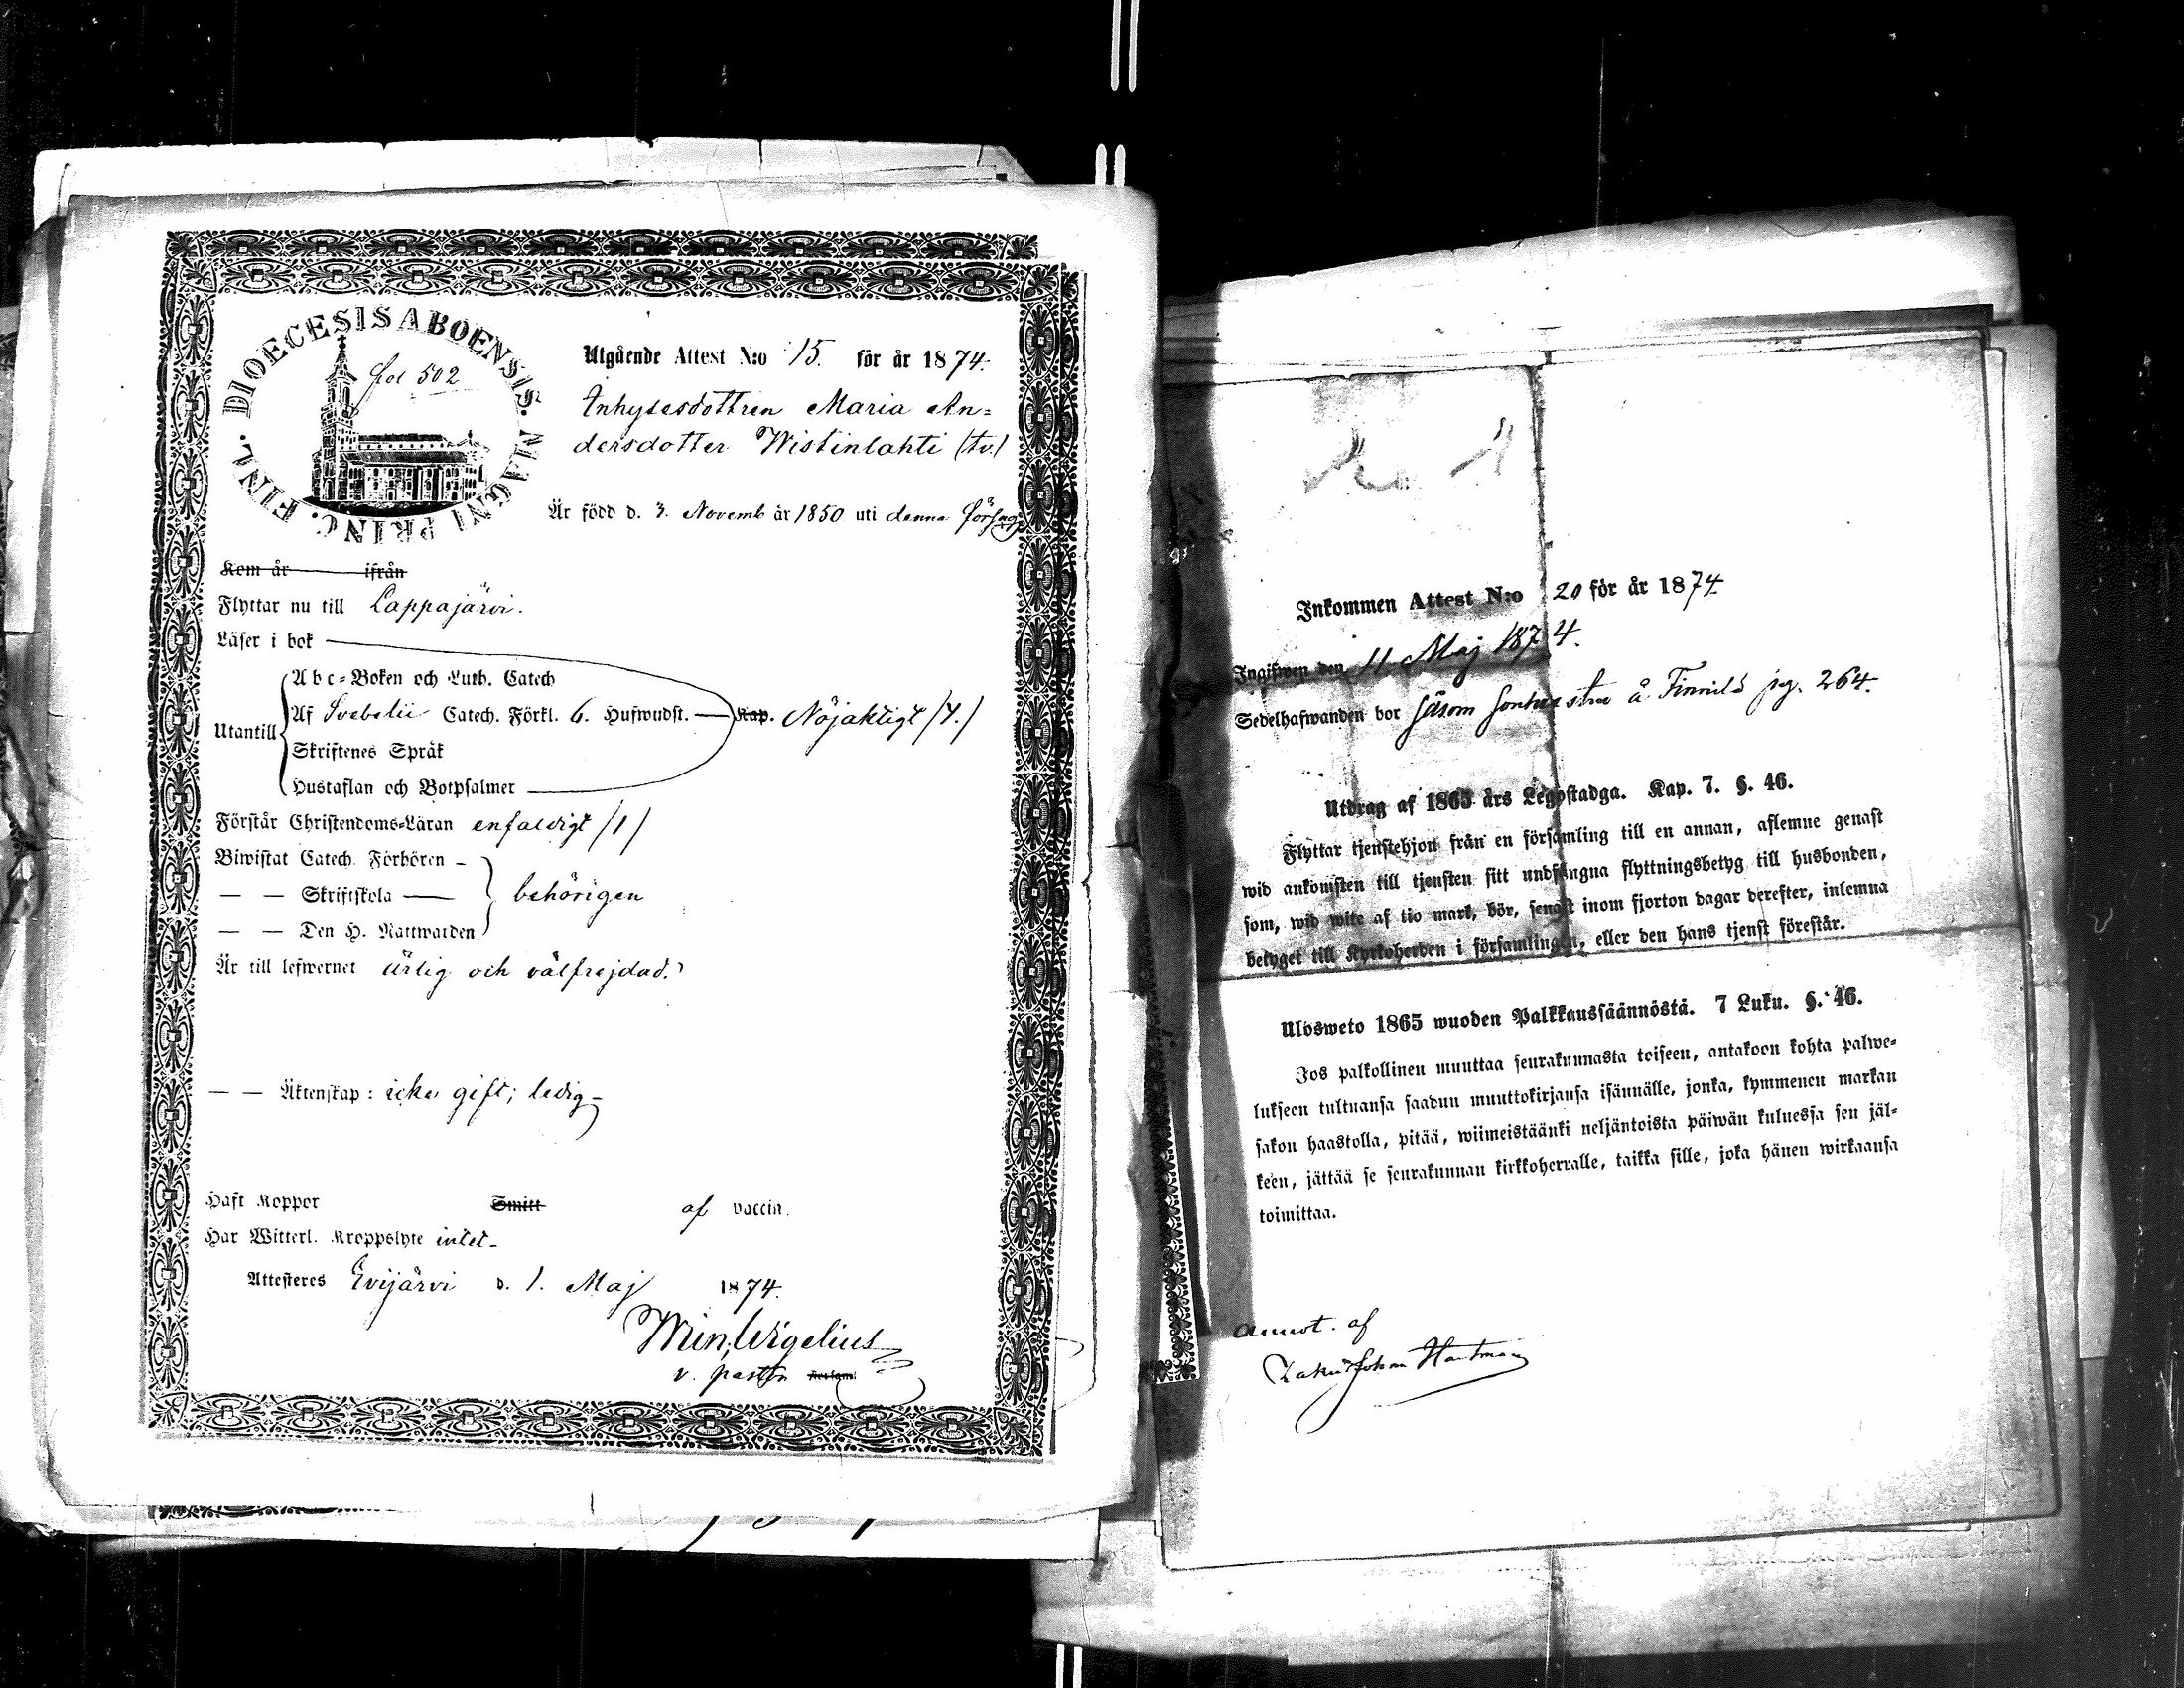 DIOECESIS ABOENSIS. MAGNI PRINC. FINL.
fol 502
Utgående Attest N:o 15. för år 1874.
Inhysesdottren Maria An=
dersdotter Wistinlahti (tv.)
Är född d. 3. Novemb år 1850 uti denna förs
Kom år ifrån
Flyttar nu till Lappajärvi.
Läser i bok
Utantill
Abc=Boken och Luth. Catech
Af Svebelii Catech. Förkl. 6. Hufwudst. — Kap. Nöjaktigt /7./
Skriftenes Språk
Hustaflan och Botpsalmer
Förstår Christendoms=Läran enfaldigt /1/
Biwistat Catech. Förhören –
— — Skriftskola — behörigen
— — Den H. Nattwarden
Är till lefwernet ärlig och välfrejdad.
— — Äktenskap: icke gift; ledig –
Haft Koppor Smitt af vaccin.
Har Witterl. Kroppslyte intet –
Attesteras Evijärvi d. 1. Maj 1874.
Wigelius
v. pastor
Inkommen Attest N:o 20 för år 1874
Ingifwen den 11 Maj 1874.
Sedelhafwanden bor såsom å Finnilä pag. 264.
Utdrag af 1865 års Legostadga. Kap. 7. §. 46.
Flyttar tjenstehjon från en församling till en annan, aflemne genast
wid ankomsten till tjensten sitt undfångna flyttningsbetyg till husbonden,
som, wid wite af tio mark, bör, senast inom fjorton dagar derefter, inlemna
betyget till Kyrkoherden i församlingen, eller den hans tjenst förestår.
Ulosweto 1865 wuoden Palkkaussäännöstä. 7 Luku. §. 46.
Jos palkollinen muuttaa seurakunnasta toiseen, antakoon kohta palwe=
lukseen tultuansa saadun muuttokirjansa isännälle, jonka, kymmenen markan
sakon haastolla, pitää, wiimeistäänki neljäntoista päiwän kuluessa sen jäl=
keen, jättää se seurakunnan kirkkoherralle, taikka sille, joka hänen wirkaansa
toimittaa.
annot. af
Johan Hartman